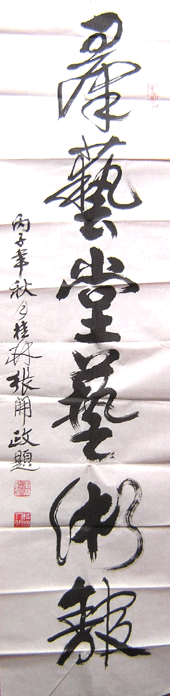 羣藝堂藝術館
丙子年秋月桂林張開政題